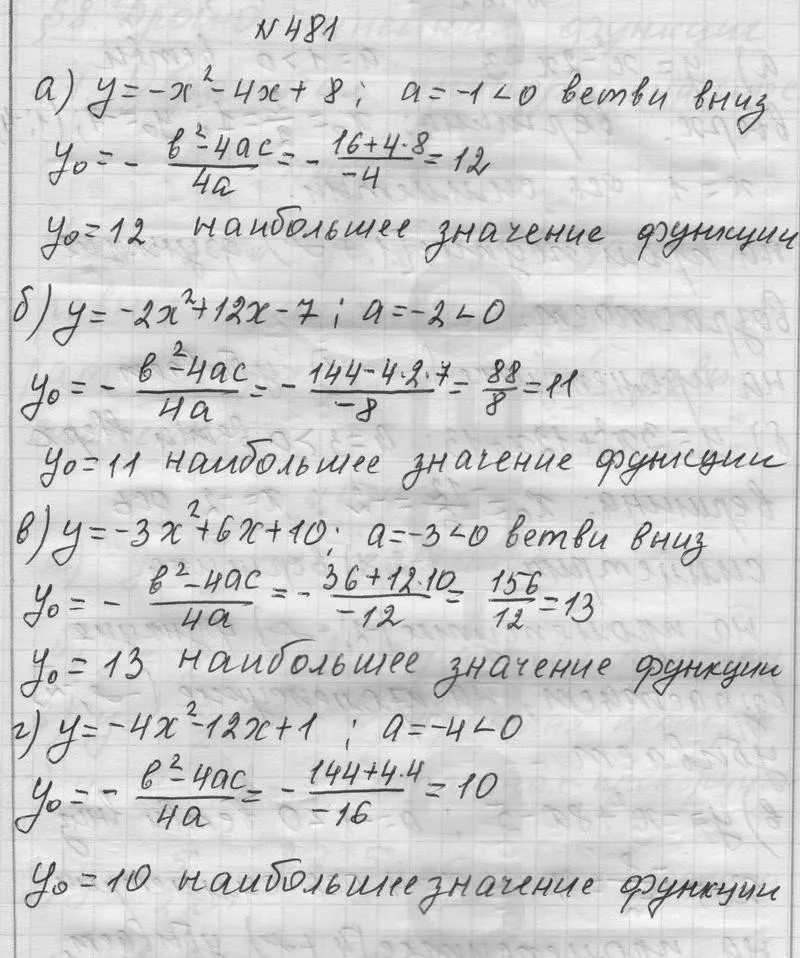 №481
а) y = -x² - 4x + 8; a = -1 < 0 ветви вниз
y₀ = - (в² - 4ac)/(4a) = - (16 + 4·8)/(-4) = 12
y₀ = 12 наибольшее значение функции
б) y = -2x² + 12x - 7; a = -2 < 0
y₀ = - (в² - 4ac)/(4a) = - (144 - 4·2·7)/(-8) = 88/8 = 11
y₀ = 11 наибольшее значение функции
в) y = -3x² + 6x + 10; a = -3 < 0 ветви вниз
y₀ = - (в² - 4ac)/(4a) = - (36 + 12·10)/(-12) = 156/12 = 13
y₀ = 13 наибольшее значение функции
г) y = -4x² - 12x + 1; a = -4 < 0
y₀ = - (в² - 4ac)/(4a) = - (144 + 4·4)/(-16) = 10
y₀ = 10 наибольшее значение функции